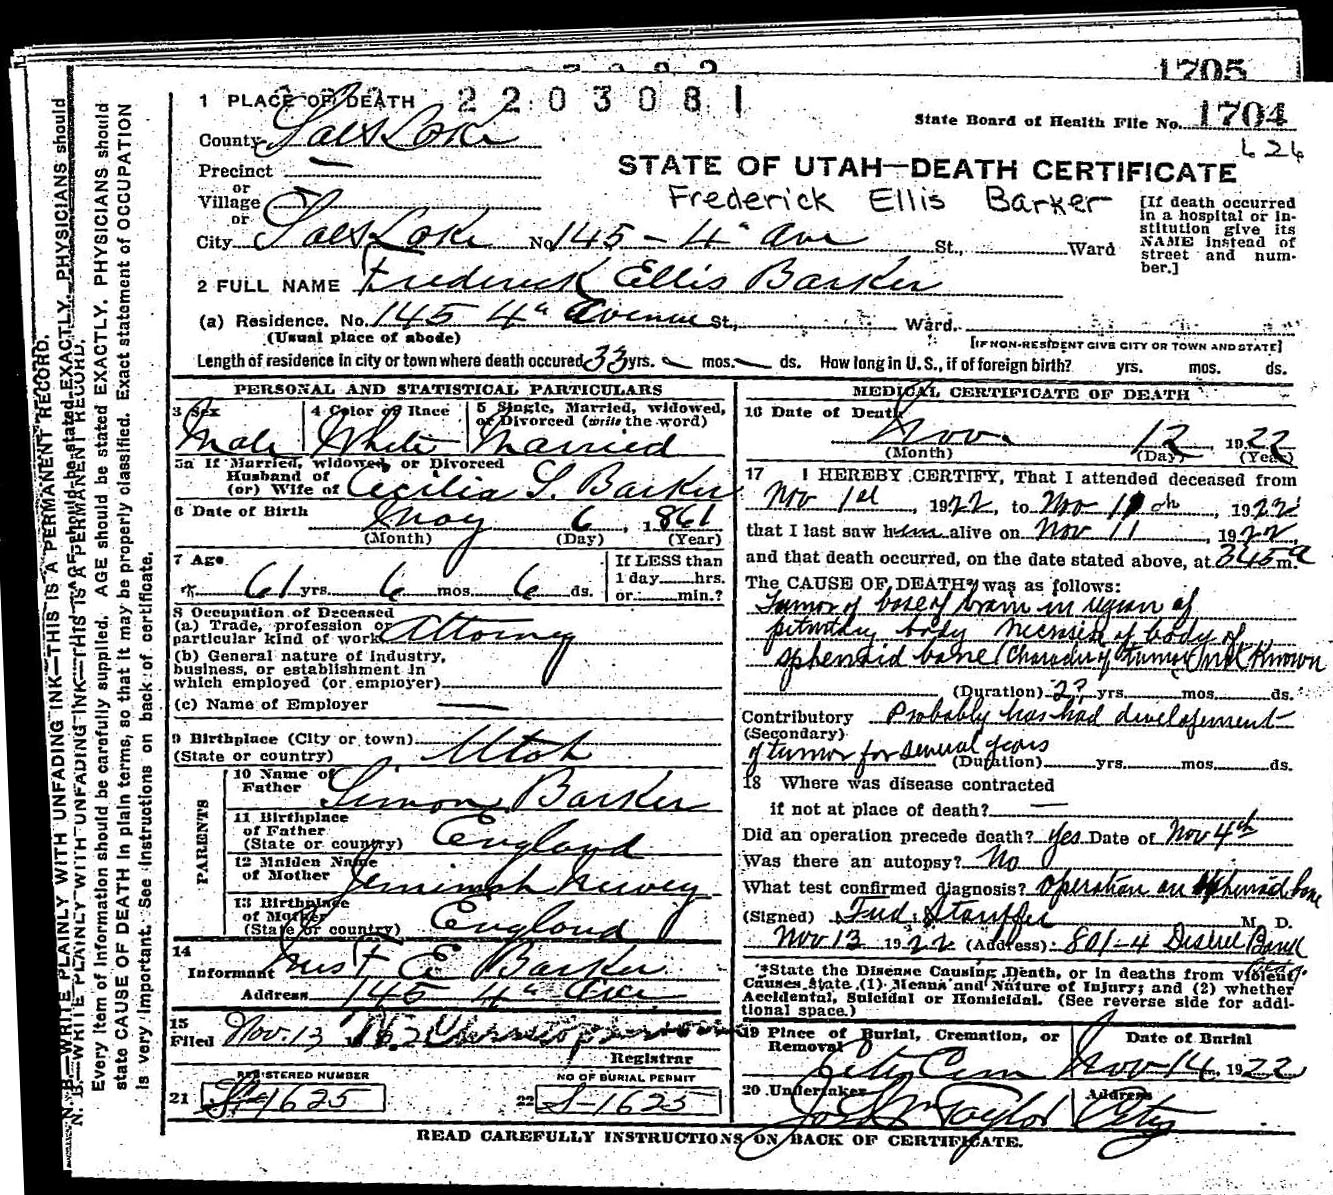 1705
1 PLACE OF DEATH 2203081
State Board of Health File No. 1704
626
County Salt Lake
STATE OF UTAH—DEATH CERTIFICATE
Precinct —
or
Village
or
Frederick Ellis Barker
[If death occurred in a hospital or institution give its NAME instead of street and number.]
City Salt Lake No. 145 - 4" Ave St., Ward
2 FULL NAME Frederick Ellis Barker
(a) Residence. No. 145 4" Avenue St., Ward.
(Usual place of abode) [IF NON-RESIDENT GIVE CITY OR TOWN AND STATE]
Length of residence in city or town where death occured 33 yrs. — mos. — ds. How long in U.S., if of foreign birth? yrs. mos. ds.
PERSONAL AND STATISTICAL PARTICULARS
3 Sex
Male
4 Color or Race
White
5 Single, Married, widowed,
or Divorced (write the word)
Married
5a If Married, widowed, or Divorced
Husband of
(or) Wife of Cecilia S. Barker
6 Date of Birth May 6, 1861
(Month) (Day) (Year)
7 Age
61 yrs. 6 mos. 6 ds.
If LESS than
1 day hrs.
or min.?
8 Occupation of Deceased
(a) Trade, profession or
particular kind of work Attorney
(b) General nature of industry,
business, or establishment in
which employed (or employer) —
(c) Name of Employer —
9 Birthplace (City or town)
(State or country) Utah
PARENTS
10 Name of
Father Simon Barker
11 Birthplace
of Father
(State or country) England
12 Maiden Name
of Mother Jemimah Newey
13 Birthplace
of Mother
(State or country) England
14
Informant Mrs F E Barker
Address 145 4" Ave
15
Filed Nov. 13
Registrar
REGISTERED NUMBER
21 1625
NO OF BURIAL PERMIT
22 S-1625
MEDICAL CERTIFICATE OF DEATH
16 Date of Death
Nov. 12 1922
(Month) (Day) (Year)
17 I HEREBY CERTIFY, That I attended deceased from
Nov 1st, 1922, to Nov 11th, 1922
that I last saw him alive on Nov 11, 1922
and that death occurred, on the date stated above, at 345 a m.
The CAUSE OF DEATH* was as follows:
Tumor of base of brain in region of
pituitary body Necrosis of body of
sphenoid bone (Character of tumor not known
(Duration) 2? yrs. mos. ds.
Contributory Probably has had development
(Secondary)
of tumor for several years
(Duration) yrs. mos. ds.
18 Where was disease contracted
if not at place of death? —
Did an operation precede death? Yes Date of Nov 4th
Was there an autopsy? No
What test confirmed diagnosis? Operation on sphenoid bone
(Signed) Fred Stauffer M. D.
Nov 13 1922 (Address) 801-4 Deseret Bank Bldg.
*State the Disease Causing Death, or in deaths from Violent
Causes, state (1) Means and Nature of Injury; and (2) whether
Accidental, Suicidal or Homicidal. (See reverse side for addi-
tional space.)
19 Place of Burial, Cremation, or
Removal
City Cem
Date of Burial
Nov 14 1922
20 Undertaker
Jos Wm Taylor
Address
City
READ CAREFULLY INSTRUCTIONS ON BACK OF CERTIFICATE.
N. B.—WRITE PLAINLY WITH UNFADING INK—THIS IS A PERMANENT RECORD.
Every item of information should be carefully supplied. AGE should be stated EXACTLY. PHYSICIANS should
state CAUSE OF DEATH in plain terms, so that it may be properly classified. Exact statement of OCCUPATION
is very important. See instructions on back of certificate.